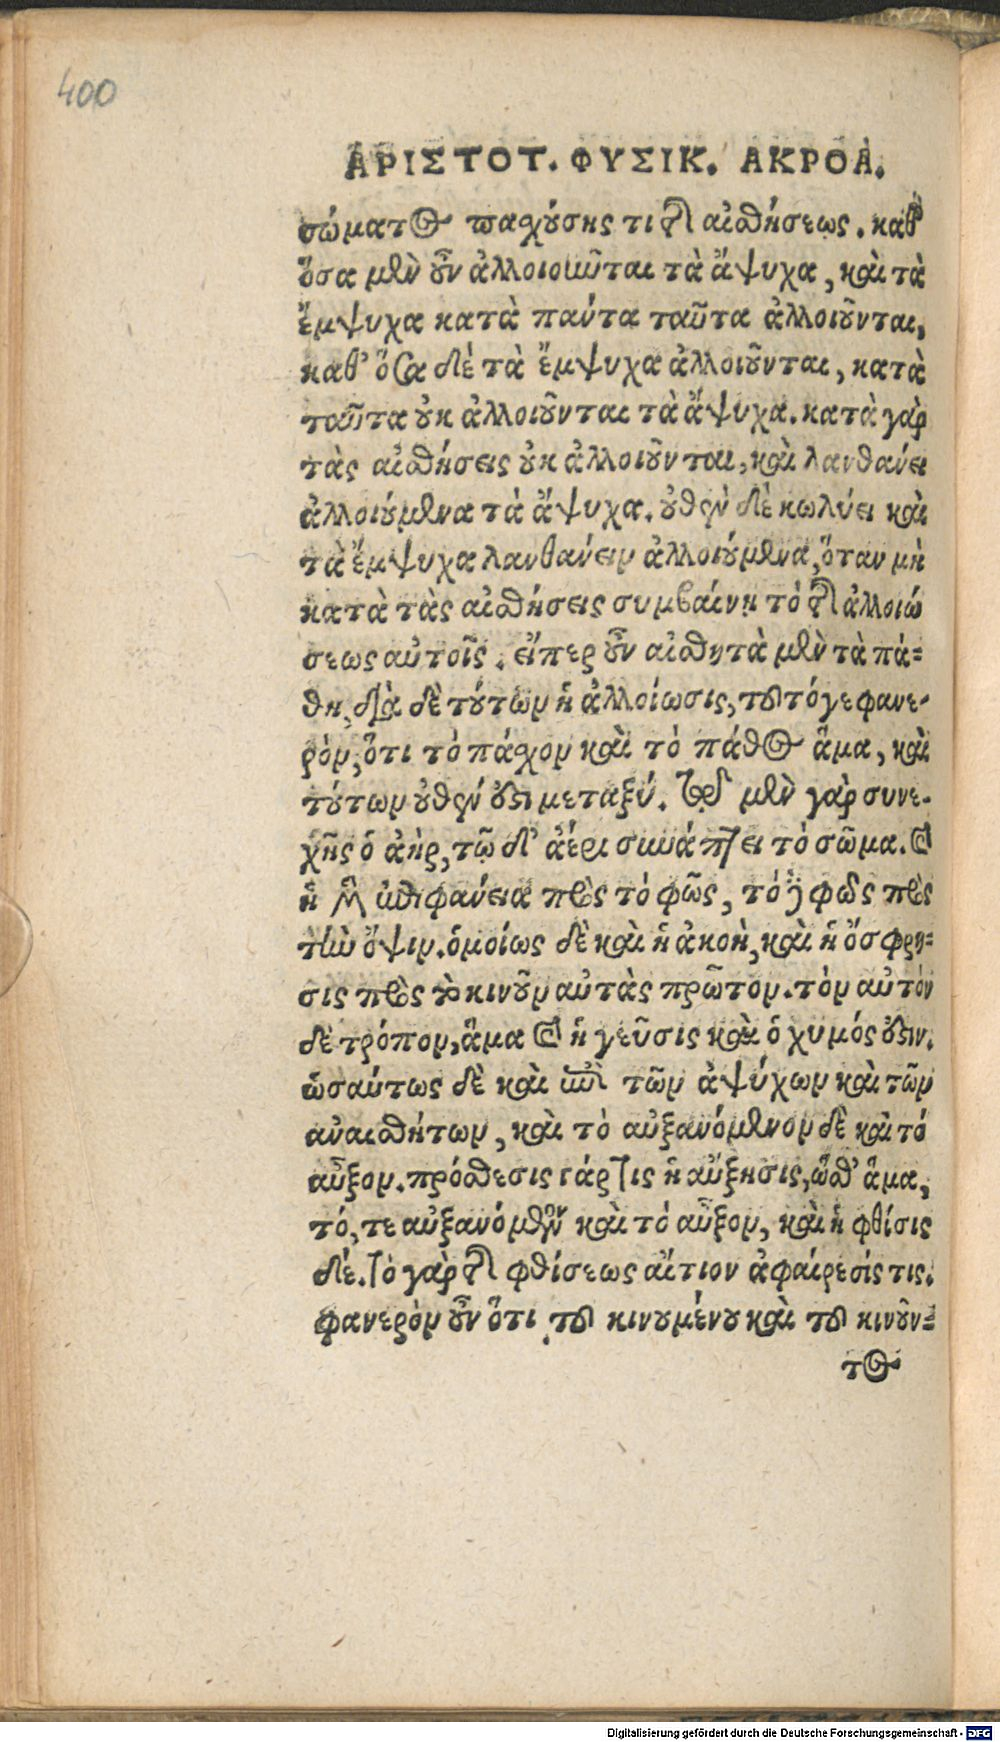 400
ΑΡΙΣΤΟΤ. ΦΥΣΙΚ. ΑΚΡΟΑ.
σώματος παχύσης τι τῆς αἰσθήσεως. καθ'
ὅσα μὲν οὖν ἀλλοιοῦται τὰ ἄψυχα, καὶ τὰ
ἔμψυχα κατὰ πάντα ταῦτα ἀλλοιοῦνται,
καθ' ὅσα δὲ τὰ ἔμψυχα ἀλλοιοῦνται, κατὰ
ταῦτα οὐκ ἀλλοιοῦνται τὰ ἄψυχα. κατὰ γὰρ
τὰς αἰσθήσεις οὐκ ἀλλοιοῦνται, καὶ λανθάνει
ἀλλοιούμενα τὰ ἄψυχα. οὐθὲν δὲ κωλύει καὶ
τὰ ἔμψυχα λανθάνειν ἀλλοιούμενα, ὅταν μὴ
κατὰ τὰς αἰσθήσεις συμβαίνῃ τὸ τῆς ἀλλοιώ
σεως αὐτοῖς. εἴπερ οὖν αἰσθητὰ μὲν τὰ πά=
θη, διὰ δὲ τούτων ἡ ἀλλοίωσις, τοῦτό γε φανε-
ρὸν, ὅτι τὸ πάσχον καὶ τὸ πάθος ἅμα, καὶ
τούτων οὐθέν ἐστι μεταξύ. τῷ μὲν γὰρ συνε-
χὴς ὁ ἀὴρ, τῷ δ' ἀέρι συνάπτει τὸ σῶμα. καὶ
ἡ μὲν ἐπιφάνεια πρὸς τὸ φῶς, τὸ δὲ φῶς πρὸς
τὴν ὄψιν. ὁμοίως δὲ καὶ ἡ ἀκοὴ, καὶ ἡ ὄσφρη=
σις πρὸς τὸ κινοῦν αὐτὰς πρῶτον. τὸν αὐτὸν
δὲ τρόπον, ἅμα καὶ ἡ γεῦσις καὶ ὁ χυμός ἐστιν.
ὡσαύτως δὲ καὶ ἐπὶ τῶν ἀψύχων καὶ τῶν
ἀναισθήτων, καὶ τὸ αὐξανόμενον δὲ καὶ τὸ
αὖξον. πρόσθεσις γάρ τις ἡ αὔξησις, ὥσθ' ἅμα,
τό, τε αὐξανόμενον καὶ τὸ αὖξον, καὶ ἡ φθίσις
δέ. τὸ γὰρ τῆς φθίσεως αἴτιον ἀφαίρεσίς τις.
φανερὸν οὖν ὅτι τοῦ κινουμένου καὶ τοῦ κινοῦν=
τος
Digitalisierung gefördert durch die Deutsche Forschungsgemeinschaft - DFG